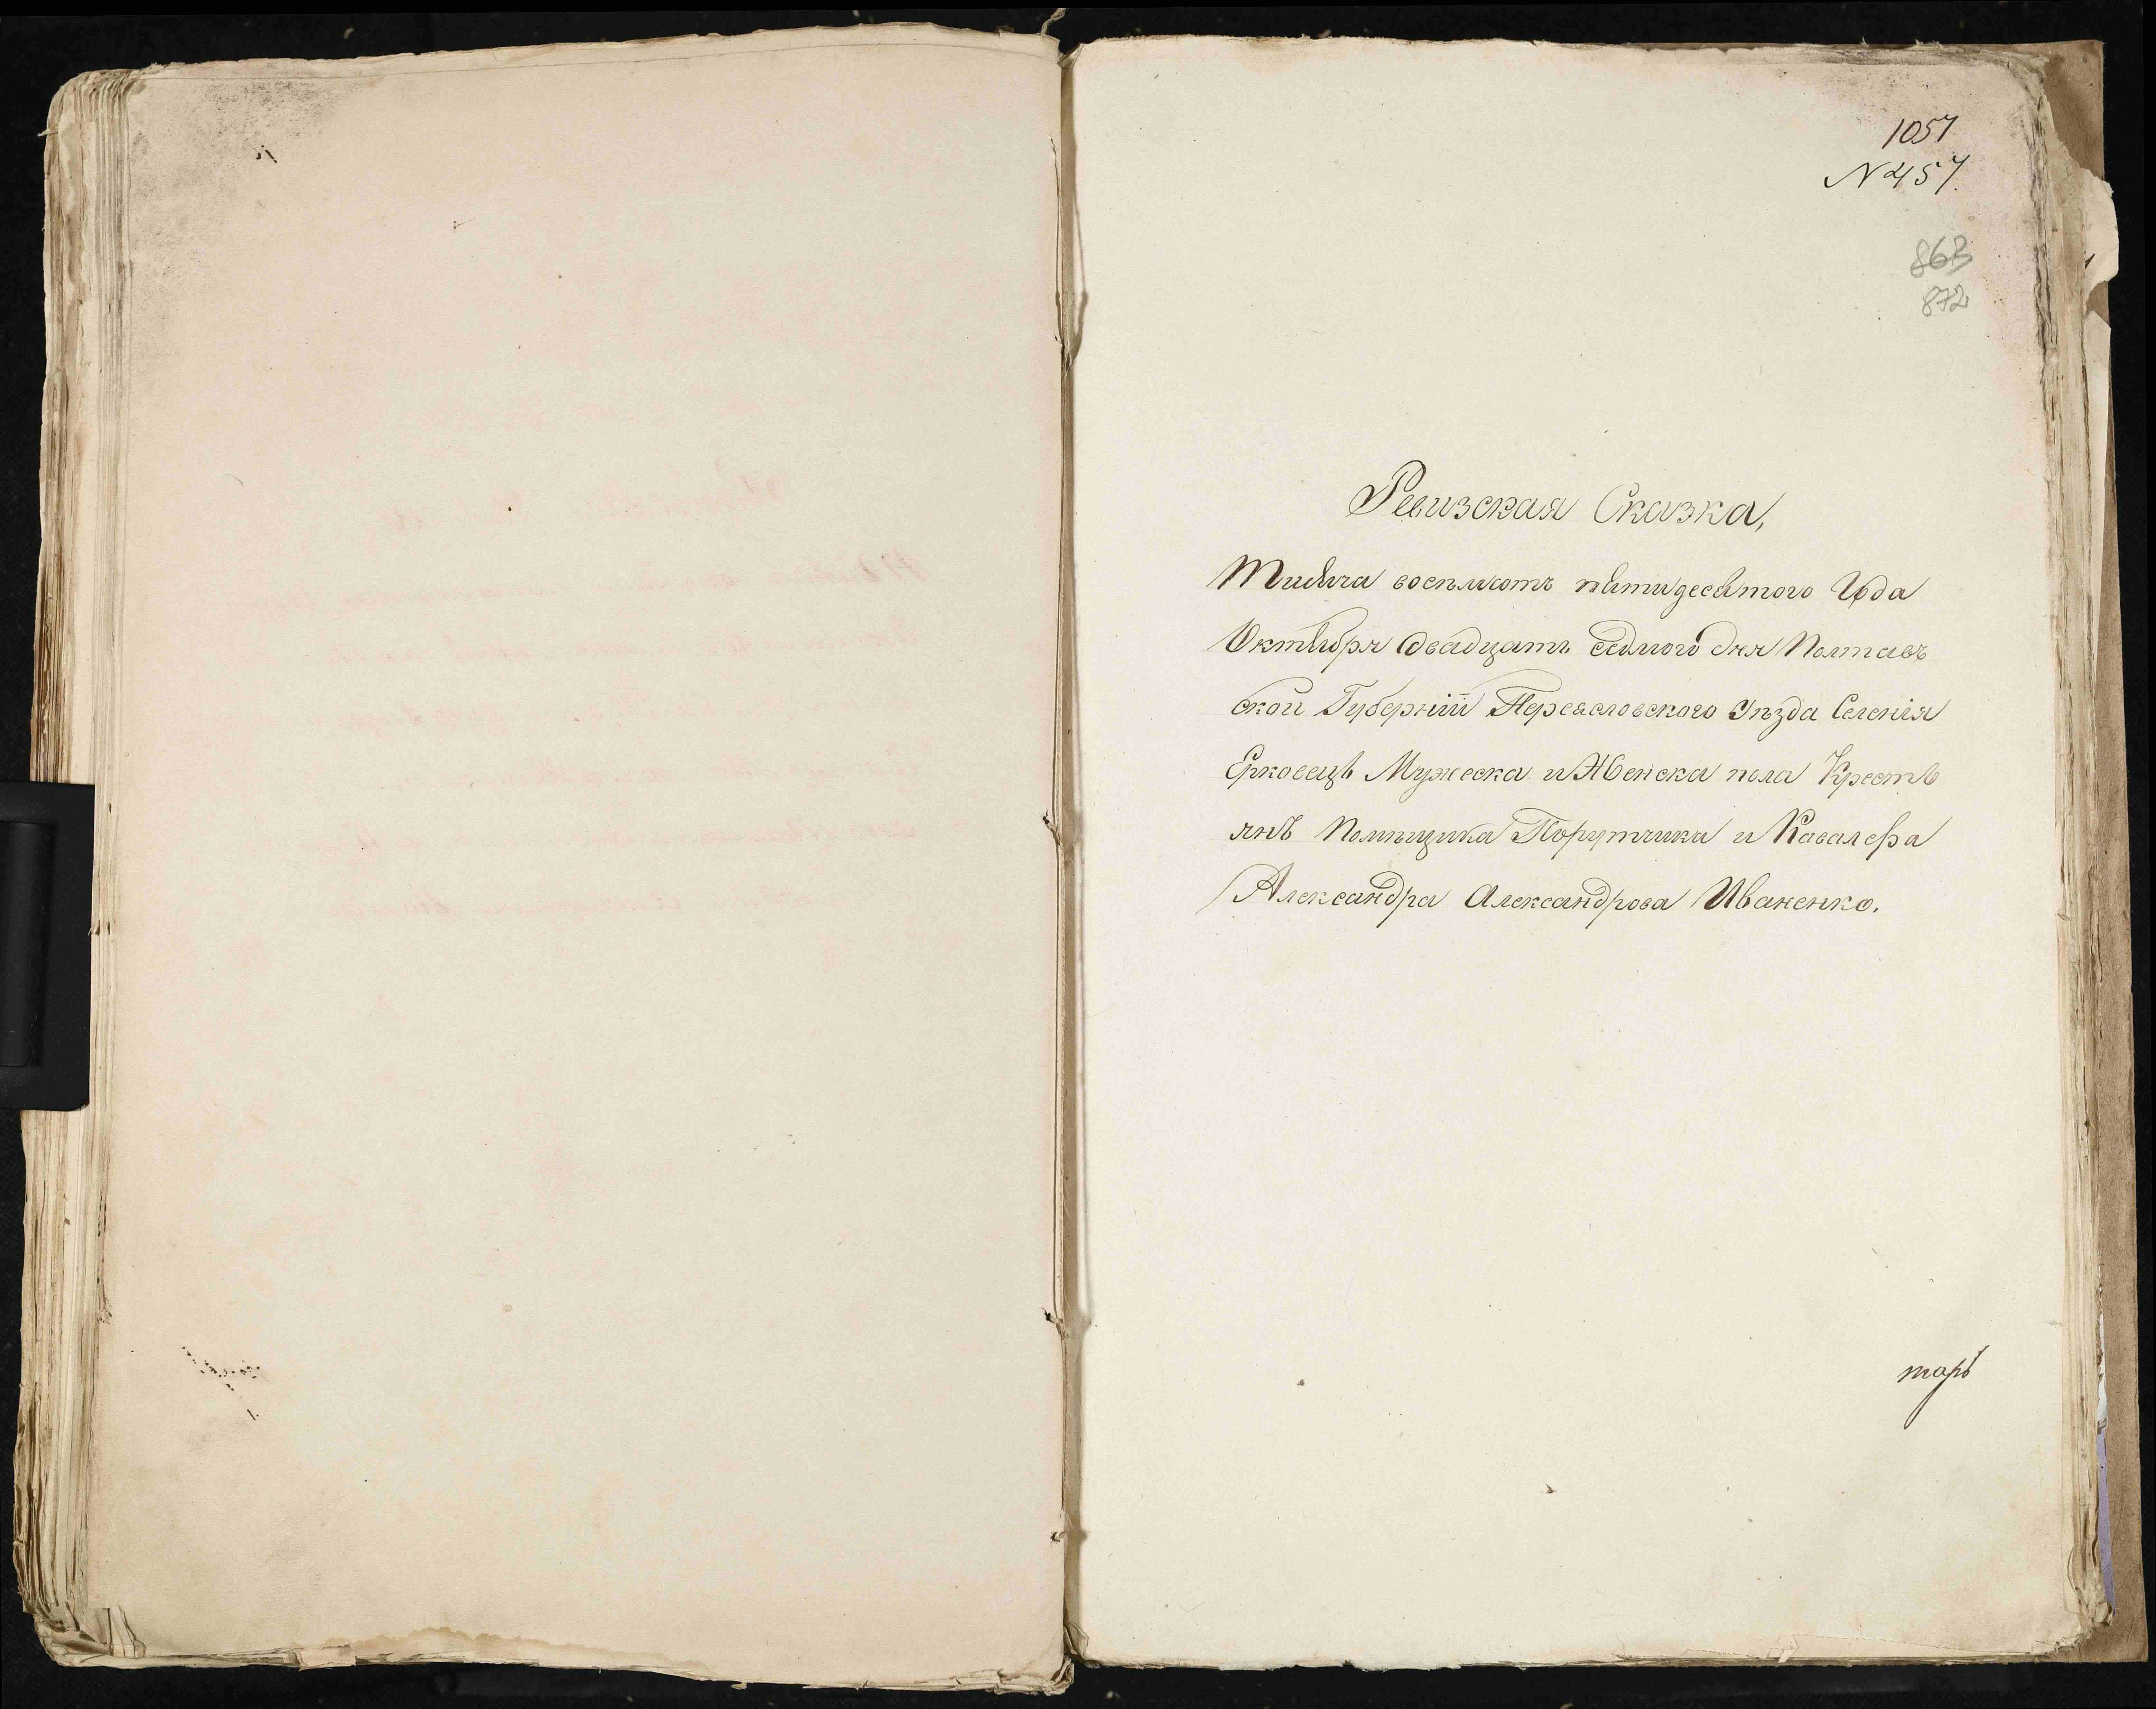 1057
N 457.
863
872
Ревизская Сказка,
Тысяча восемьсотъ пятидесятого Года
Октября двадцать седмого дня Полтавъ
ской Губерніи Переясловского Уѣзда Селенія
Ерковецъ Мужеска и Женска пола Кресть
янъ Помѣщика Порутчика и Кавалера
Александра Александрова Иваненко.
таръ